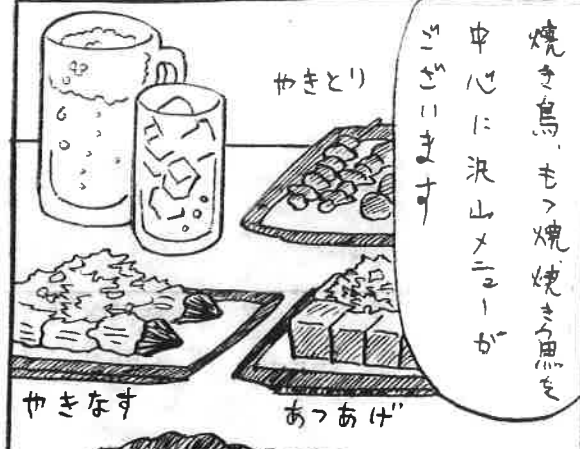 焼き鳥、もつ焼、焼き魚を
中心に沢山メニューが
ございます
やきとり
やきなす
あつあげ